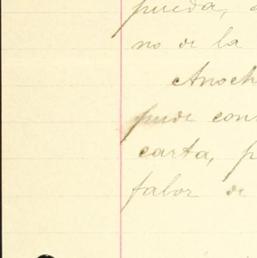 pueda,
no de la
Anoch
pude con
carta, p
falor de